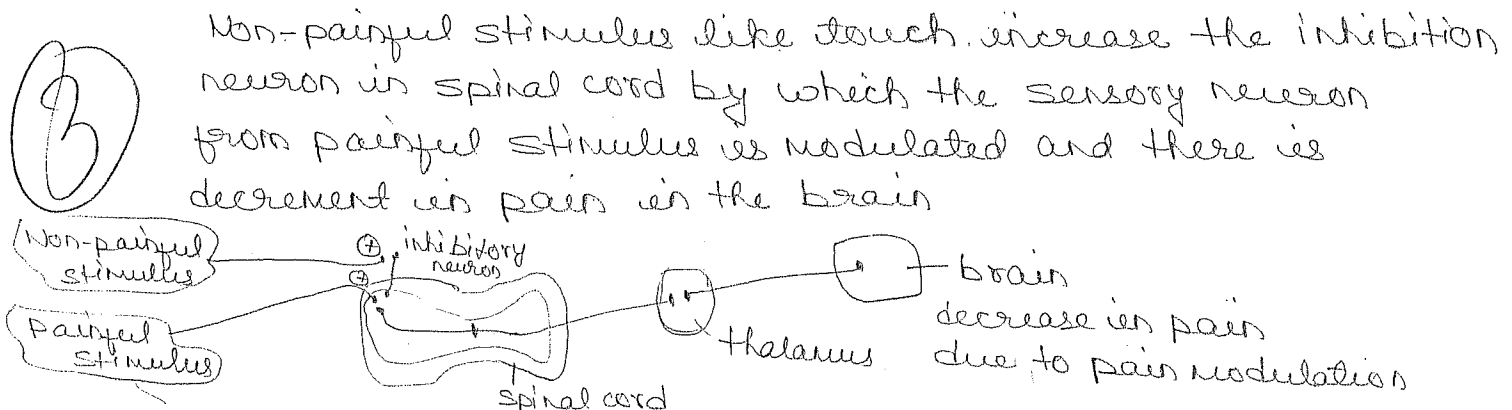 Non-painful stimulus like touch increase the inhibition
3
neuron in spinal cord by which the sensory neuron
from painful stimulus is modulated and there is
decrement in pain in the brain
Non-painful
stimulus
+ inhibitory
neuron
+
brain
Painful
stimulus
thalamus
decrease in pain
due to pain modulation
spinal cord